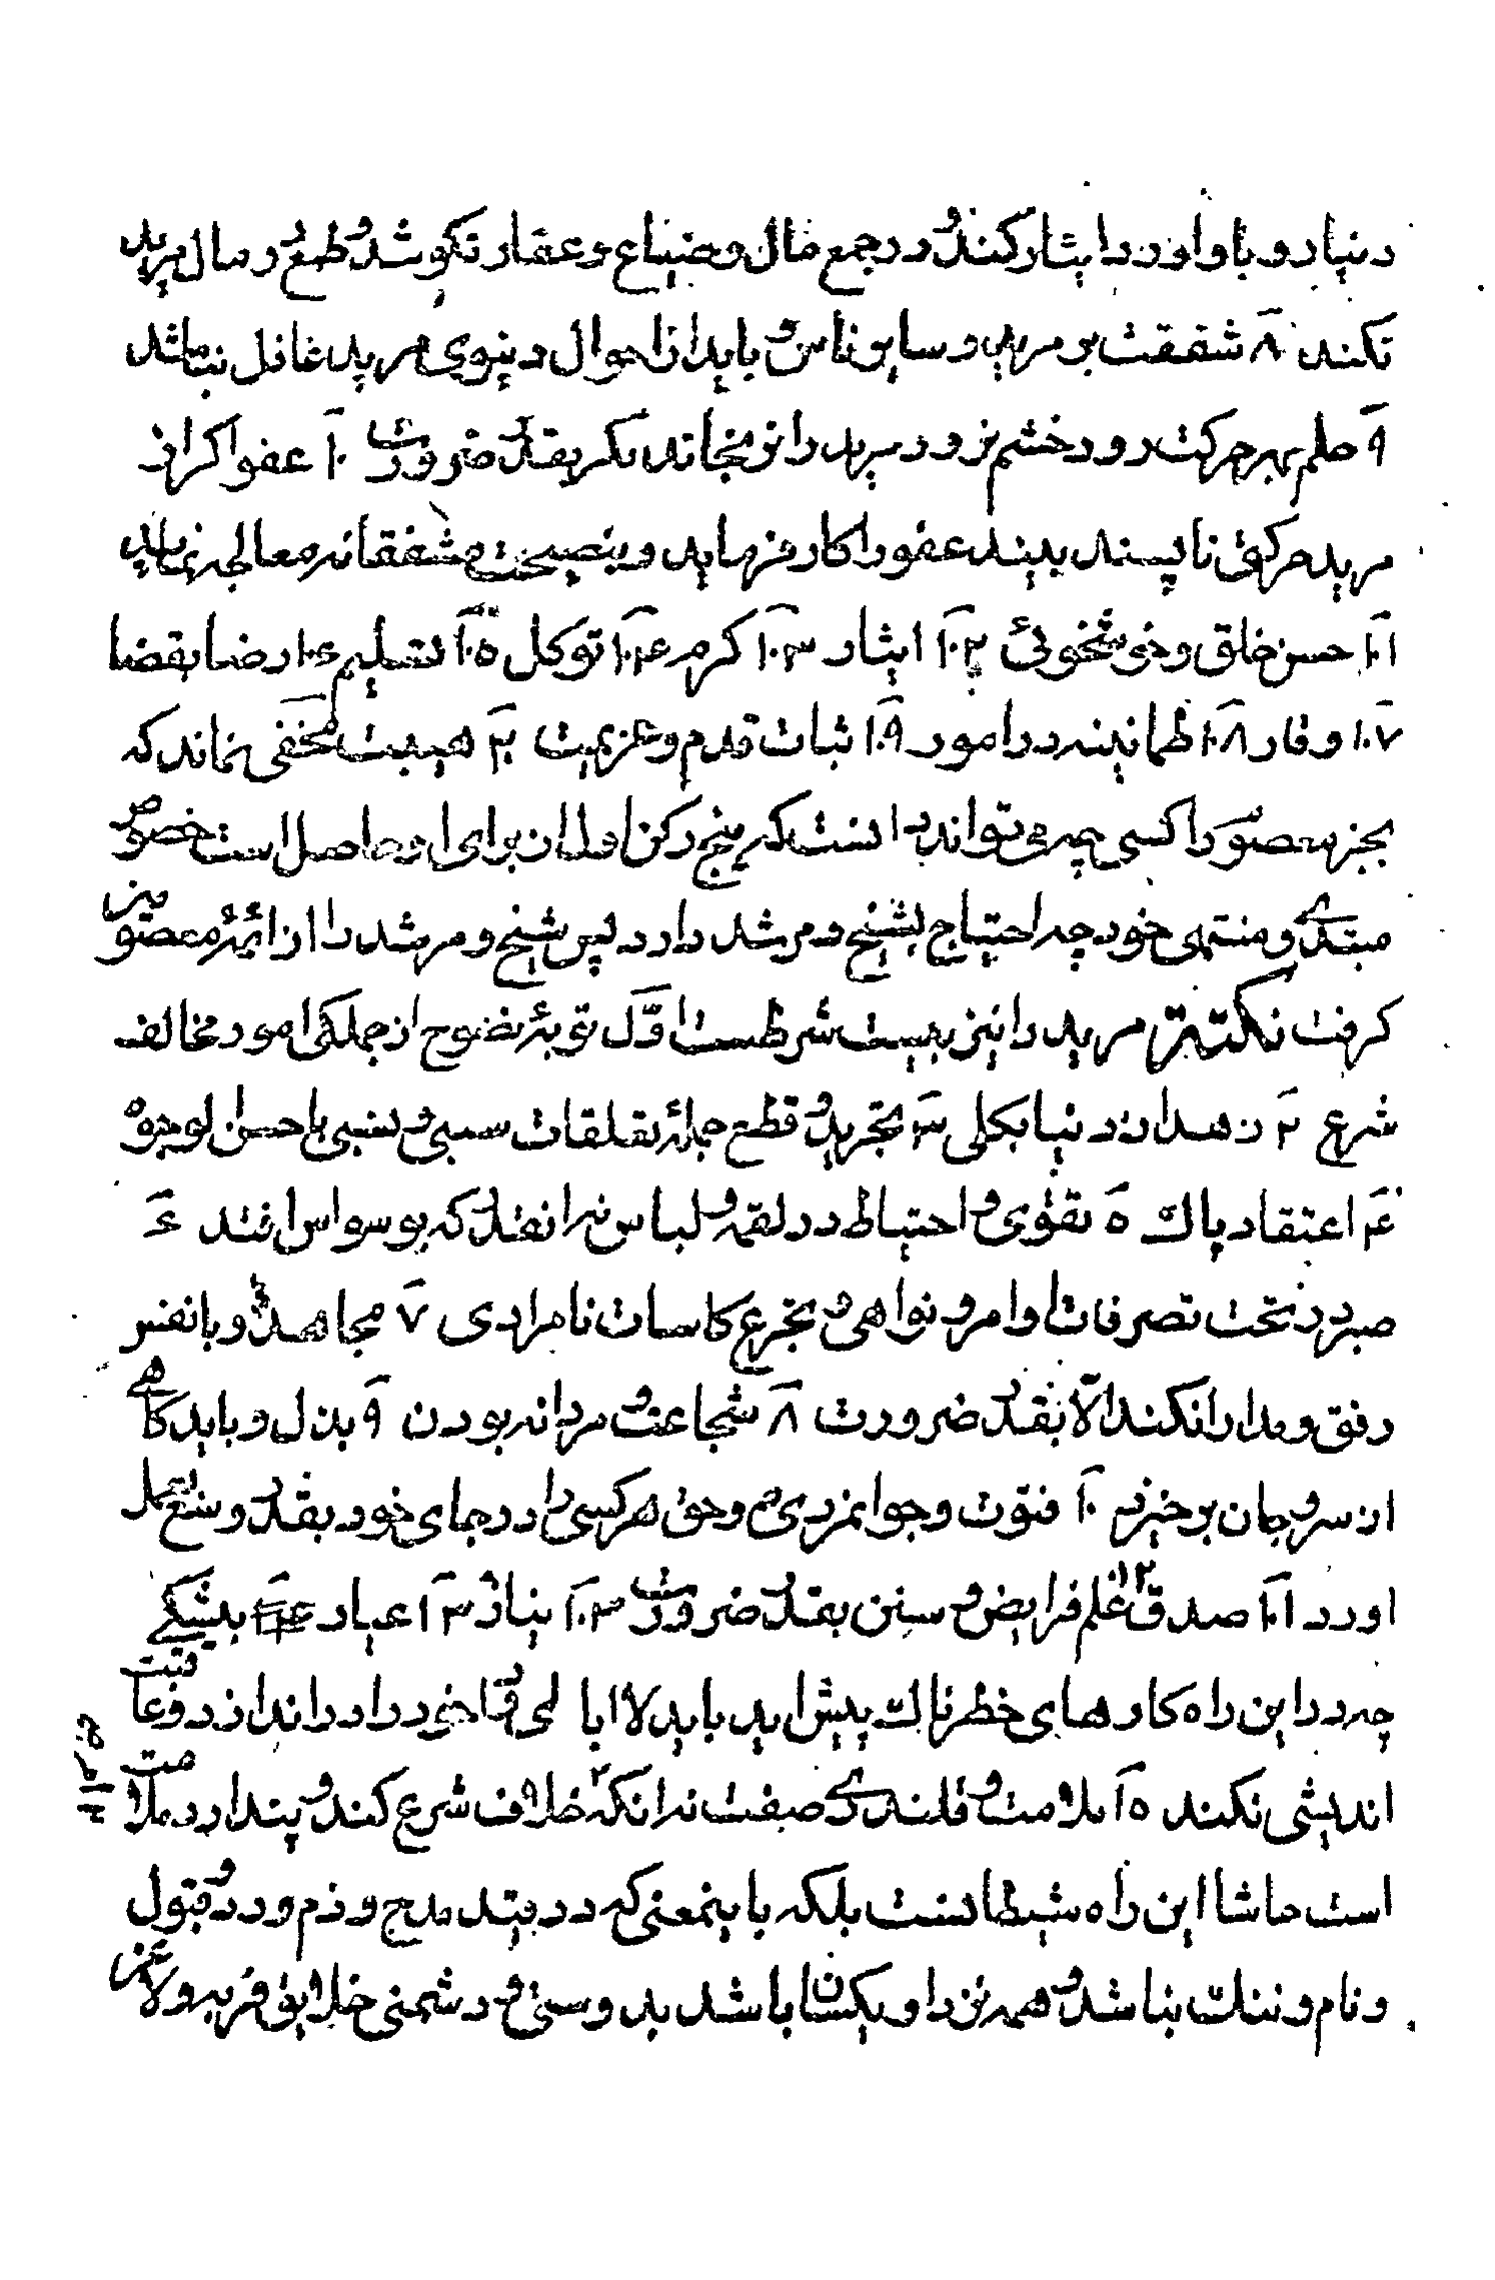 دنیا رو با او اورد ایثار کند و در جمع مال و ضیاع و عقار نکوشد و طمع در مال مرید
نکند ۸ شفقت بر مرید و سایر ناس و باید از احوال دینوی مرید غافل نباشد
۹ حلم بهر حرکت رود خشم نرود مرید را نرنجاند مگر بقدر ضرورت ۱۰ عفو اکر از
مرید حرکتی ناپسند بیند عفو را کار فرماید و بنصیحت مشفقانه معالجه نماید
۱۰۱ حسن خلق و خوشخوئی ۱۰۲ ایثار ۱۰۳ کرم ۱۰۴ توکل ۱۰۵ تسلیم ۱۰۶ رضا بقضا
۱۰۷ وقار ۱۰۸ طمانینه در امور ۱۰۹ ثبات قدم و عزیمت ۲۰ هیبت مخفی نماند که
بجز معصوم را کسی چه می تواند دانست که پنج رکن اول ان برای او حاصل است خصوص
مبتدی و منتهی خود چه احتیاج بشیخ و مرشد دارد پس شیخ و مرشد را از ائمهٔ معصومین
کرفت نکتة مرید را نیز بیست شرطست اوّل توبهٔ نصوح از جملکی امور مخالف
شرع ۲ زهد از دنیا بکلی ۳ تجرید و قطع جملهٔ تعلقات سببی و نسبی باحسن الوجوه
۴ اعتقاد پاک ۵ تقوی و احتیاط در لقمه و لباس نه انقدر که بوسواس افتد ۶
صبر در تحت تصرفات اوامر و نواهی و تجرع کاسات نامرادی ۷ مجاهده و با نفس
رفق و مدارا نکند الّا بقدر ضرورت ۸ شجاعت و مردانه بودن ۹ بذل و باید کاهی
از سر و جان برخیزد ۱۰ فتوّت و جوانمردی و حق هر کسی را در جای خود بقدر وسع بعمل
اورد ۱۰۱ صدق ۱۲ علم فرایض و سنن بقدر ضرورت ۱۰۳ نیاز ۱۳ عیار پیشگی
چه در این راه کارهای خطرناک پیش اید باید لا ابالی وقا خود را در اندازد و عاقبت
اندیشی نکند ۱۵ ملامت و قلندری صفت نه انکه خلاف شرع کند و پندارد ملامت
است حاشا این راه شیطانست بلکه باینمعنی که در بند مدح و ذم و رد و قبول
و نام و ننک نباشد و همه نزد او یکسان باشد بد و سنی و دشمنی خلایق فربه و لاغر